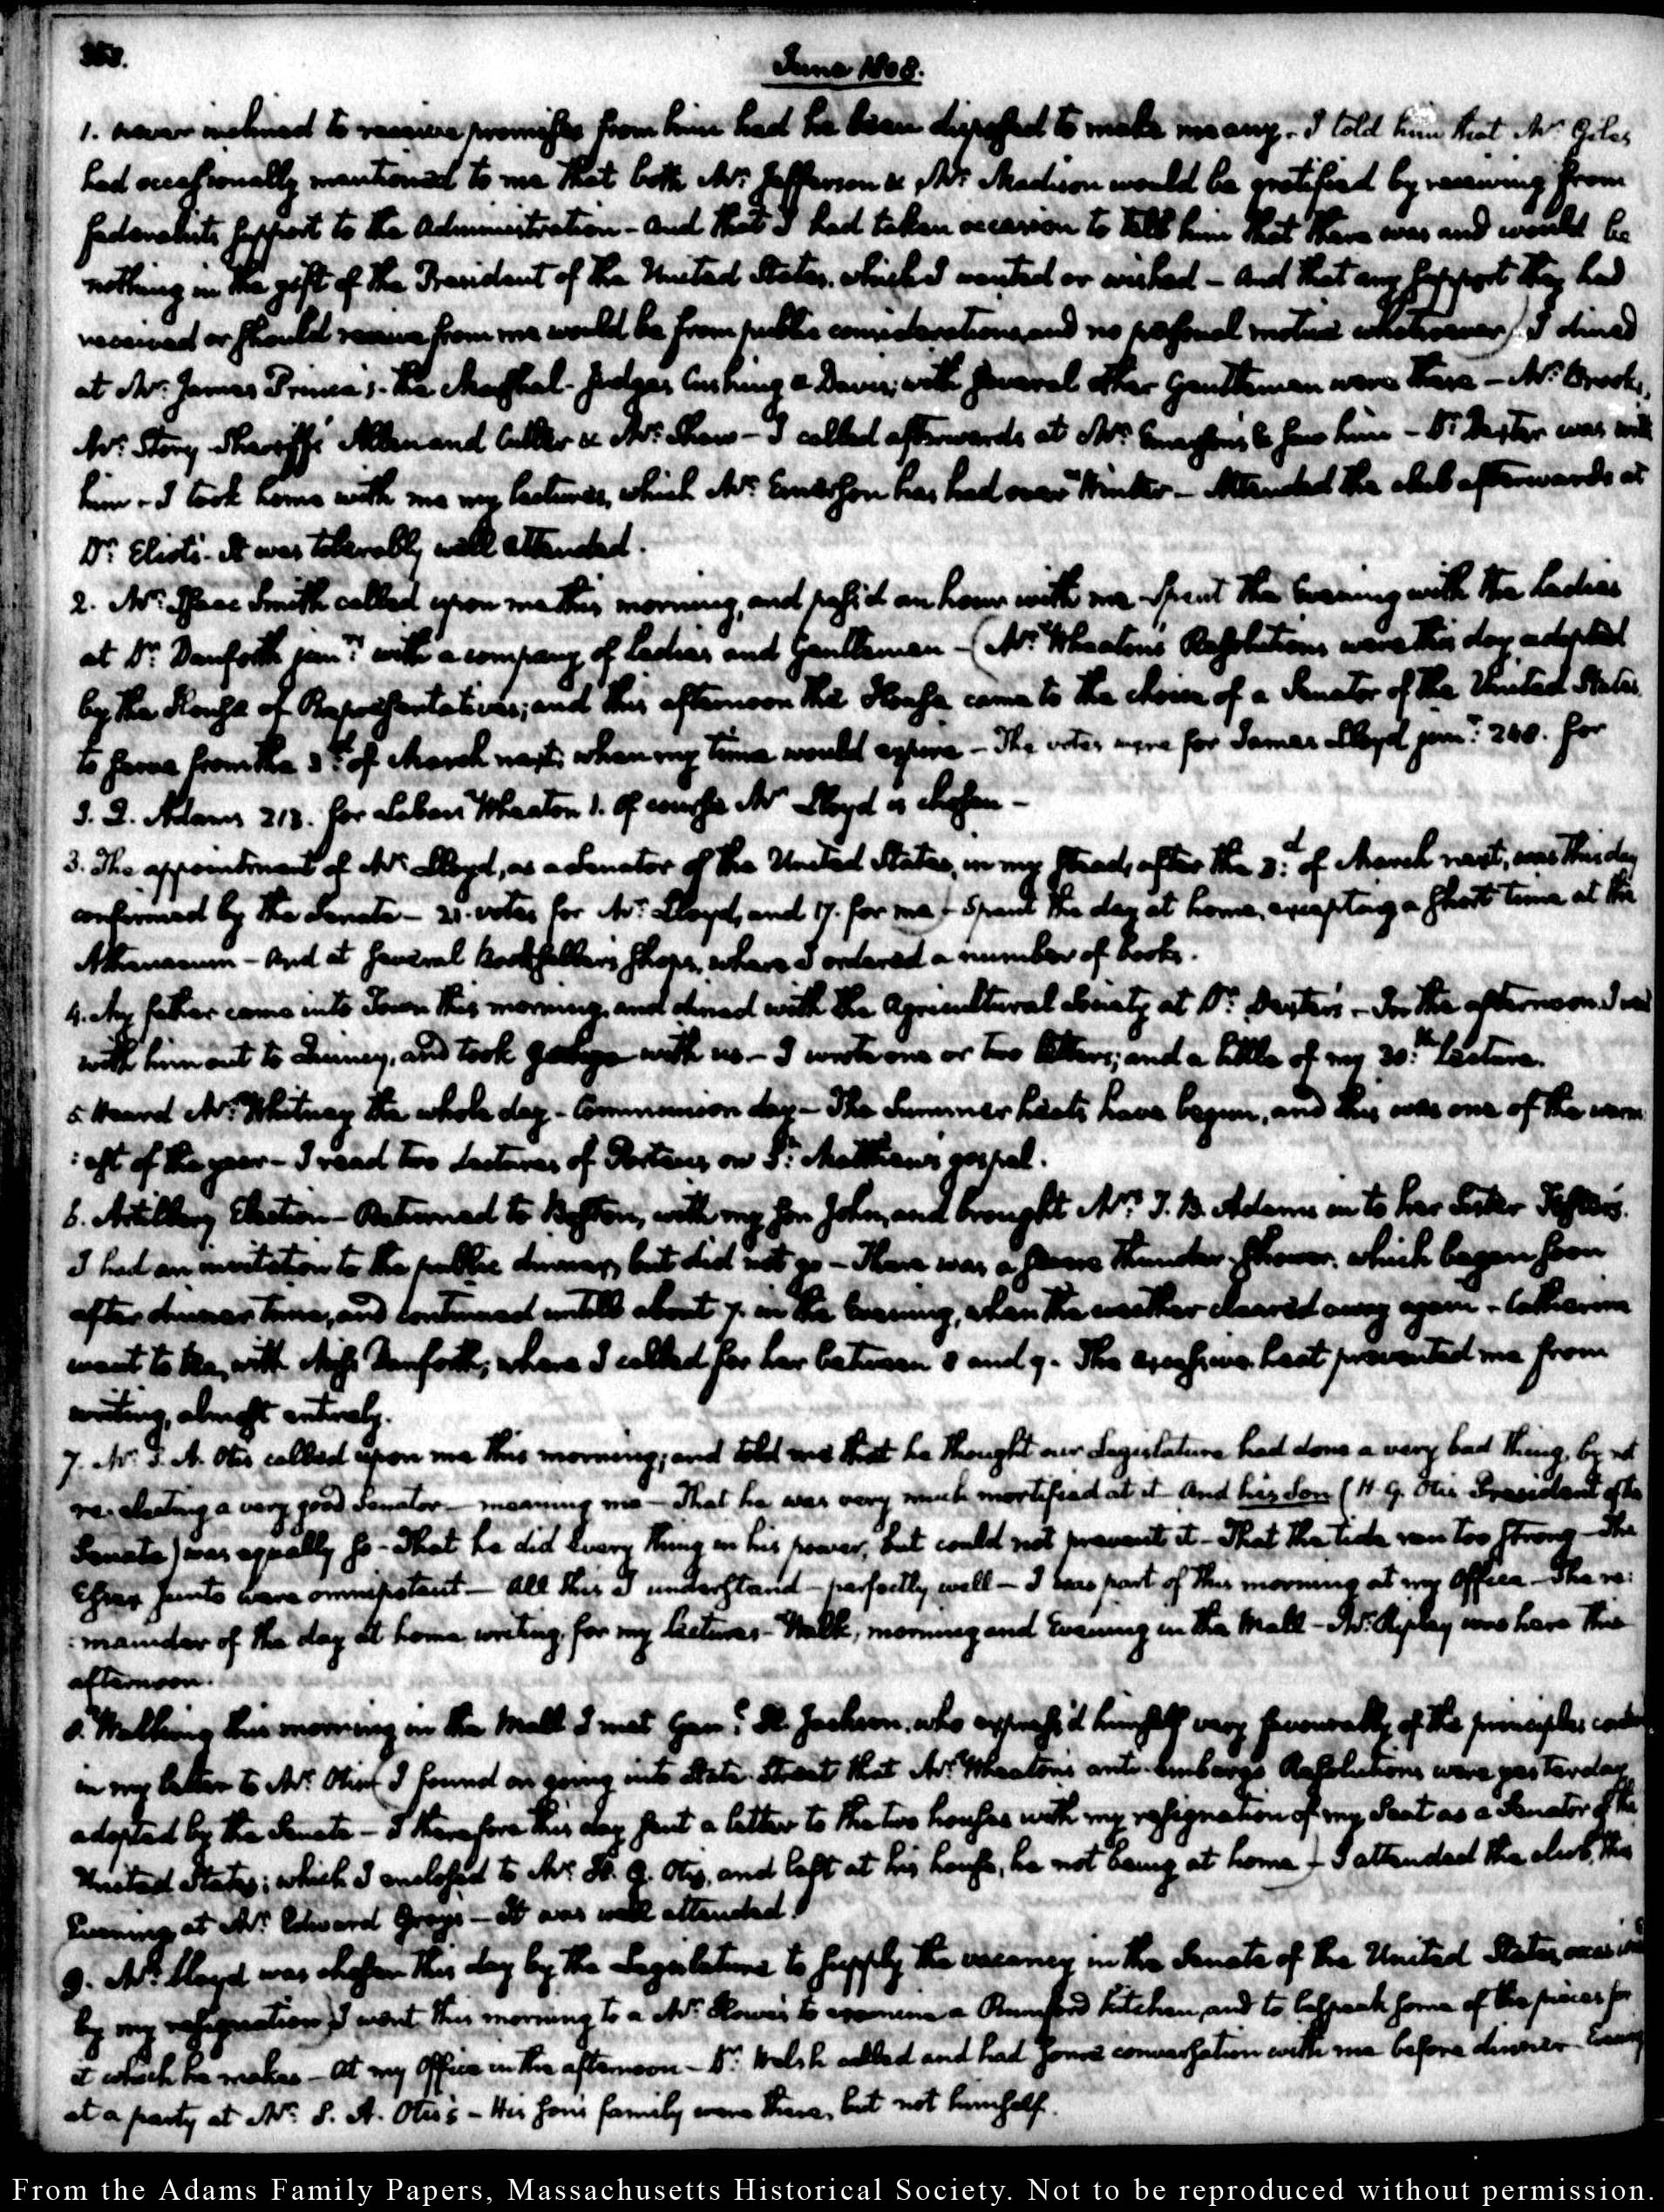 358.
June 1808.
1. never inclined to receive promises from him had he been disposed to make me any. I told him that Mr. Giles
had occasionally mentioned to me that both Mr. Jefferson & Mr. Madison would be gratified by receiving from
federalists support to the Administration - and that I had taken occasion to tell him that there was and would be
nothing in the gift of the President of the United States, which I wanted or wished - and that any support they had
received or should receive from me would be from public considerations and no personal motive whatsoever) I dined
at Mr. James Prince's - the Marshal - Judges Cushing & Davis, with several other Gentlemen were there - Mr. Brooks,
Mr. Story Sheriffs Allen and Cutler & Mr. Shaw - I called afterwards at Mr. Emerson's & saw him - Dr. Dexter was with
him - I took home with me my lectures, which Mr. Emerson has had over Winter - Attended the club afterwards at
Dr. Eliot's - It was tolerably well attended.
2. Mr. Isaac Smith called upon me this morning, and pass'd an hour with me - Spent the Evening with the Ladies
at Dr. Danforth junr. with a company of Ladies and Gentlemen - (Mr. Wheaton's Resolutions were this day adopted
by the House of Representatives; and this afternoon the House came to the choice of a Senator of the United States
to serve from the 3d. of March next, when my time would expire - The votes were for James Lloyd junr. 248. for
J. Q. Adams 213. for Laban Wheaton 1. Of course Mr Lloyd is chosen -
3. The appointment of Mr. Lloyd, as a Senator of the United States, in my stead, after the 3d. of March next, was this day
confirmed by the Senate - 21. votes for Mr. Lloyd, and 17. for me) - Spent the day at home, excepting a short time at the
Athenaeum - And at several Bookseller's shops, where I ordered a number of books.
4. My father came into Town this morning, and dined with the Agricultural Society at Dr. Dexter's - In the afternoon I
with him out to Quincy, and took George with us - I wrote one or two letters; and a little of my 30th. Lecture.
5. Heard Mr. Whitney the whole day - Communion day - The Summer heats have begun, and this was one of the warm
:est of the year - I read two Lectures of Porteus, on St. Matthew's gospel.
6. Artillery Election - Returned to Boston, with my Son John, and brought Mrs. T. B. Adams in to her Sister
I had an invitation to the public dinner, but did not go - There was a severe thunder shower, which began soon
after dinner time, and continued untill about 7. in the Evening, when the weather cleared away again - Catherine
went to tea, with Miss Danforth, where I called for her between 8 and 9 - The excessive heat prevented me from
writing, almost entirely.
7. Mr. S. A. Otis called upon me this morning; and told me that he thought our Legislature had done a very bad thing, by not
re-electing a very good Senator - meaning me - That he was very much mortified at it - And his Son (H. G. Otis President of the
Senate) was equally so - That he did every thing in his power, but could not prevent it - That the tide ran too strong - The
Essex Junto were omnipotent - All this I understand - perfectly well - I was part of this morning at my Office - The re:
:mainder of the day at home, writing, for my lectures - Walk, morning and Evening in the Mall - Mr. Ripley was here this
afternoon.
8. Walking this morning in the Mall I met Genl. H. Jackson, who express'd himself very favourably of the principles
in my letter to Mr. Otis (I found on going into State Street that Mr. Wheaton's anti-embargo Resolutions were yesterday
adopted by the Senate - I therefore this day sent a letter to the two houses with my resignation of my Seat as a Senator of the
United States; which I enclosed to Mr. H. G. Otis, and left at his house, he not being at home) - I attended the club, this
Evening, at Mr. Edward Gray's - It was well attended.
9. Mr. Lloyd was chosen this day by the Legislature to supply the vacancy in the Senate of the United States,
by my resignation) I went this morning to a Mr. Howe's to examine a Rumford Kitchen, and to bespeak some of the pieces for
it which he makes - At my Office in the afternoon - Dr. Welsh called and had some conversation with me before dinner - Evening
at a party at Mr. S. A. Otis's - His son's family were there, but not himself.
From the Adams Family Papers, Massachusetts Historical Society. Not to be reproduced without permission.